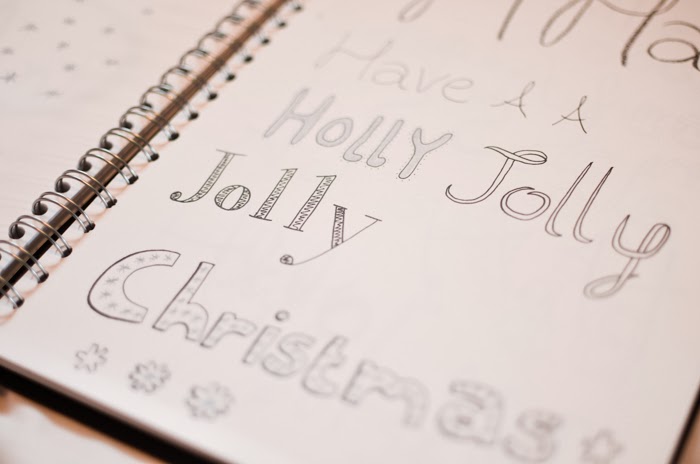 Have A A
HollY Jolly
Jolly
Christmas